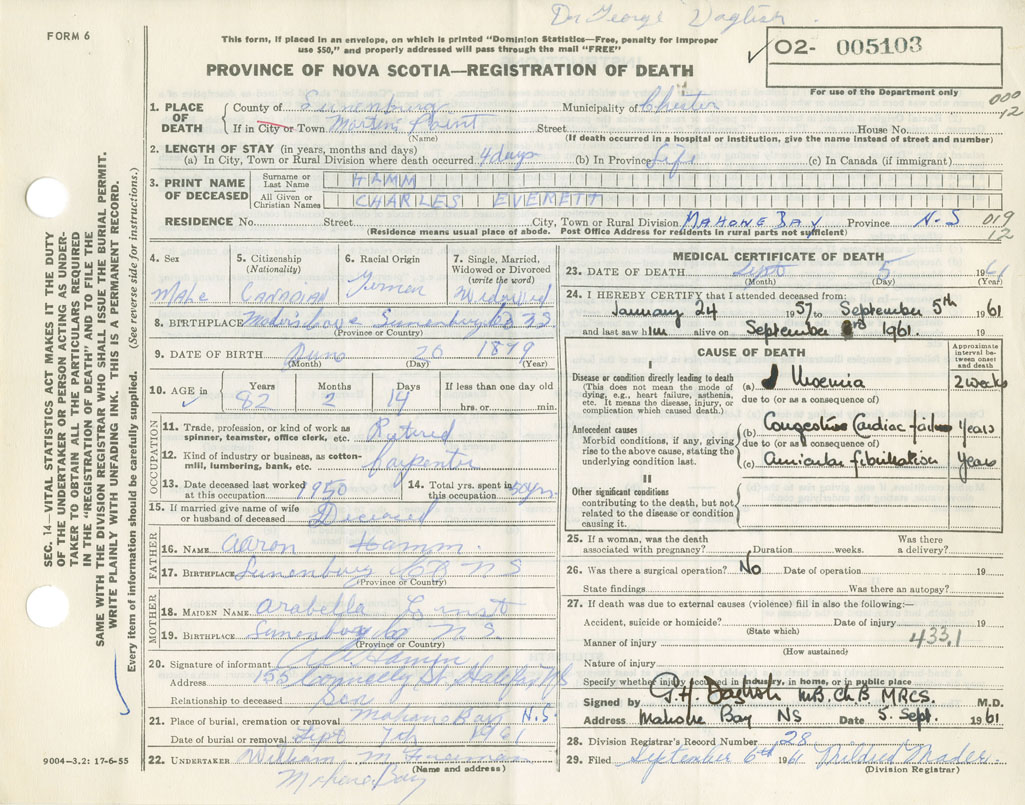 Dr George Daglish.
FORM 6
This form, if placed in an envelope, on which is printed "Dominion Statistics—Free, penalty for improper
use $50," and properly addressed will pass through the mail "FREE"
O2- 005103
PROVINCE OF NOVA SCOTIA—REGISTRATION OF DEATH
For use of the Department only
000
12
1. PLACE OF DEATH
County of Lunenburg Municipality of Chester
If in City or Town Martins Point Street House No.
(Name) (If death occurred in a hospital or institution, give the name instead of street and number)
2. LENGTH OF STAY (in years, months and days)
(a) In City, Town or Rural Division where death occurred. 4 days (b) In Province Life (c) In Canada (if immigrant)
3. PRINT NAME OF DECEASED
Surname or Last Name HAMM
All Given or Christian Names CHARLES EVERETT
RESIDENCE No. Street City, Town or Rural Division MAHONE BAY Province N.S 019
12
(Residence means usual place of abode. Post Office Address for residents in rural parts not sufficient)
4. Sex
Male
5. Citizenship
(Nationality)
CANADIAN
6. Racial Origin
German
7. Single, Married,
Widowed or Divorced
(write the word)
Widowed
8. BIRTHPLACE Lunenburg
(Province or Country)
9. DATE OF BIRTH June 20 1879
(Month) (Day) (Year)
10. AGE in
Years Months Days If less than one day old
82 2 14 hrs. or min.
OCCUPATION
11. Trade, profession, or kind of work as
spinner, teamster, office clerk, etc. Retired
12. Kind of industry or business, as cotton-
mill, lumbering, bank, etc. Carpenter
13. Date deceased last worked
at this occupation 1950
14. Total yrs. spent in
this occupation 50 yrs.
15. If married give name of wife
or husband of deceased Deceased
FATHER
16. NAME Aaron Hamm
17. BIRTHPLACE Lunenburg Co N S
(Province or Country)
MOTHER
18. MAIDEN NAME Arabella Ernst
19. BIRTHPLACE Lunenburg Co N.S.
(Province or Country)
20. Signature of informant Hamm
Address 155 Connolly St Halifax NS
Relationship to deceased Son
21. Place of burial, cremation or removal Mahone Bay N.S.
Date of burial or removal Sept 7th 1961
22. UNDERTAKER William M
(Name and address)
Mahone Bay
9004—3.2: 17-6-55
MEDICAL CERTIFICATE OF DEATH
23. DATE OF DEATH Sept 5 1961
(Month) (Day) (Year)
24. I HEREBY CERTIFY that I attended deceased from:
January 24 1957 to September 5th 1961
and last saw him alive on September 1961. 19
CAUSE OF DEATH
Approximate
interval be-
tween onset
and death
I
Disease or condition directly leading to death
(This does not mean the mode of
dying, e.g., heart failure, asthenia,
etc. It means the disease, injury, or
complication which caused death.)
(a) Uraemia 2 weeks
due to (or as a consequence of)
Antecedent causes
Morbid conditions, if any, giving
rise to the above cause, stating the
underlying condition last.
(b) Congestive Cardiac failure Years
due to (or as a consequence of)
(c) Auricular fibrillation Years
II
Other significant conditions
contributing to the death, but not
related to the disease or condition
causing it.
25. If a woman, was the death
associated with pregnancy? Duration weeks. Was there
a delivery?
26. Was there a surgical operation? No Date of operation 19
State findings Was there an autopsy?
27. If death was due to external causes (violence) fill in also the following:—
Accident, suicide or homicide? Date of injury 19
(State which)
Manner of injury 433.1
(How sustained)
Nature of injury
Specify whether injury occurred in industry, in home, or in public place
Signed by G.H. Daglish MB. Ch.B MRCS. M.D.
Address Mahone Bay NS Date 5. Sept. 1961
28. Division Registrar's Record Number 28
29. Filed September 6th 1961 Mildred Mader
(Division Registrar)
SEC. 14—VITAL STATISTICS ACT MAKES IT THE DUTY
OF THE UNDERTAKER OR PERSON ACTING AS UNDER-
TAKER TO OBTAIN ALL THE PARTICULARS REQUIRED
IN THE "REGISTRATION OF DEATH" AND TO FILE THE
SAME WITH THE DIVISION REGISTRAR WHO SHALL ISSUE THE BURIAL PERMIT.
WRITE PLAINLY WITH UNFADING INK. THIS IS A PERMANENT RECORD.
Every item of information should be carefully supplied. (See reverse side for instructions.)